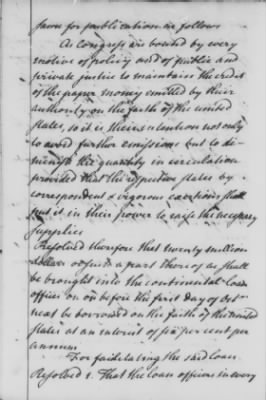 same for publication as follows
As Congress are bound by every
motive of policy and of public and
private justice to maintain the credit
of the paper money emitted by their
authority on the faith of the united
states, so it is their intention not only
to avoid further emissions but to di-
minish the quantity in circulation
provided that the respective states by
correspondent & vigorous exertions shall
put it in their power to raise the necessary
supplies
Resolved therefore that twenty million
dollars or such part thereof as shall
be brought into the continental loan
offices on or before the first day of Octr
next be borrowed on the faith of the United
States at an interest of six per cent per
annum
For facilitating the said loan
Resolved 1. That the loan officers in every